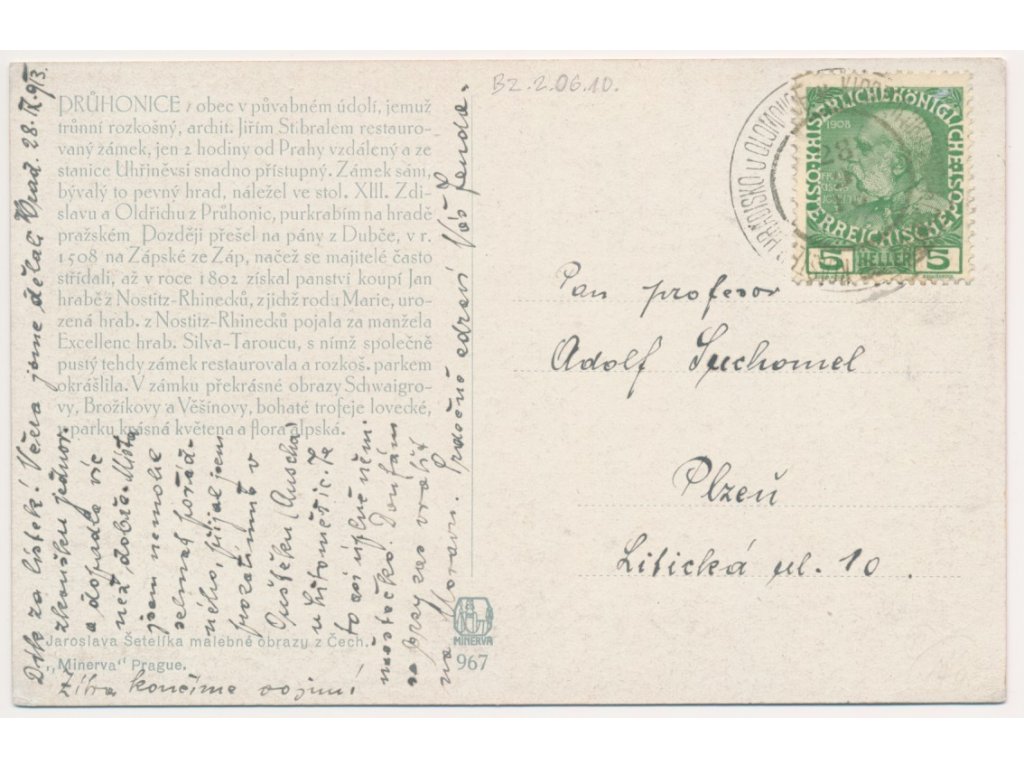 Bz. 2.06.10.
PRŮHONICE, obec v půvabném údolí, jemuž
trůnní rozkošný, archit. Jiřím Stibralem restauro-
vaný zámek, jen 2 hodiny od Prahy vzdálený a ze
stanice Uhřiněvsi snadno přístupný. Zámek sám,
bývalý to pevný hrad, náležel ve stol. XIII. Zdi-
slavu a Oldřichu z Průhonic, purkrabím na hradě
pražském Později přešel na pány z Dubče, v r.
1508 na Zápské ze Záp, načež se majitelé často
střídali, až v roce 1802 získal panství koupí Jan
hrabě z Nostitz-Rhinecků, z jichž rodu Marie, uro-
zená hrab. z Nostitz-Rhinecků pojala za manžela
Excellenc hrab. Silva-Taroucu, s nímž společně
pustý tehdy zámek restaurovala a rozkoš. parkem
okrášlila. V zámku překrásné obrazy Schwaigro-
vy, Brožíkovy a Věšínovy, bohaté trofeje lovecké,
v parku krásná květena a flora alpská.
Jaroslava Šetelíka malebné obrazy z Čech.
„Minerva" Prague.
MINERVA
967
Dík za lístek! Včera jsme dělali
zkoušku jednor.
a dopadla víc
než dobře. Místa
jsem nemohl
sehnat pořád-
ného, přijal jsem
v
Ouštěku (Auscha)
u Litoměřic. Je
to asi úplně něm.
městečko. Doufám
zas vrátit
na Moravu. Srdečně zdraví Váš Fenda.
Zítra končíme vojnu!
HRADISKO U OLOMOUCE
28
KAISERLICHE KÖNIGLICHE
ÖSTERREICHISCHE POST
1908
5 HELLER 5
Pan profesor
Adolf Suchomel
Plzeň
Litická ul. 10.